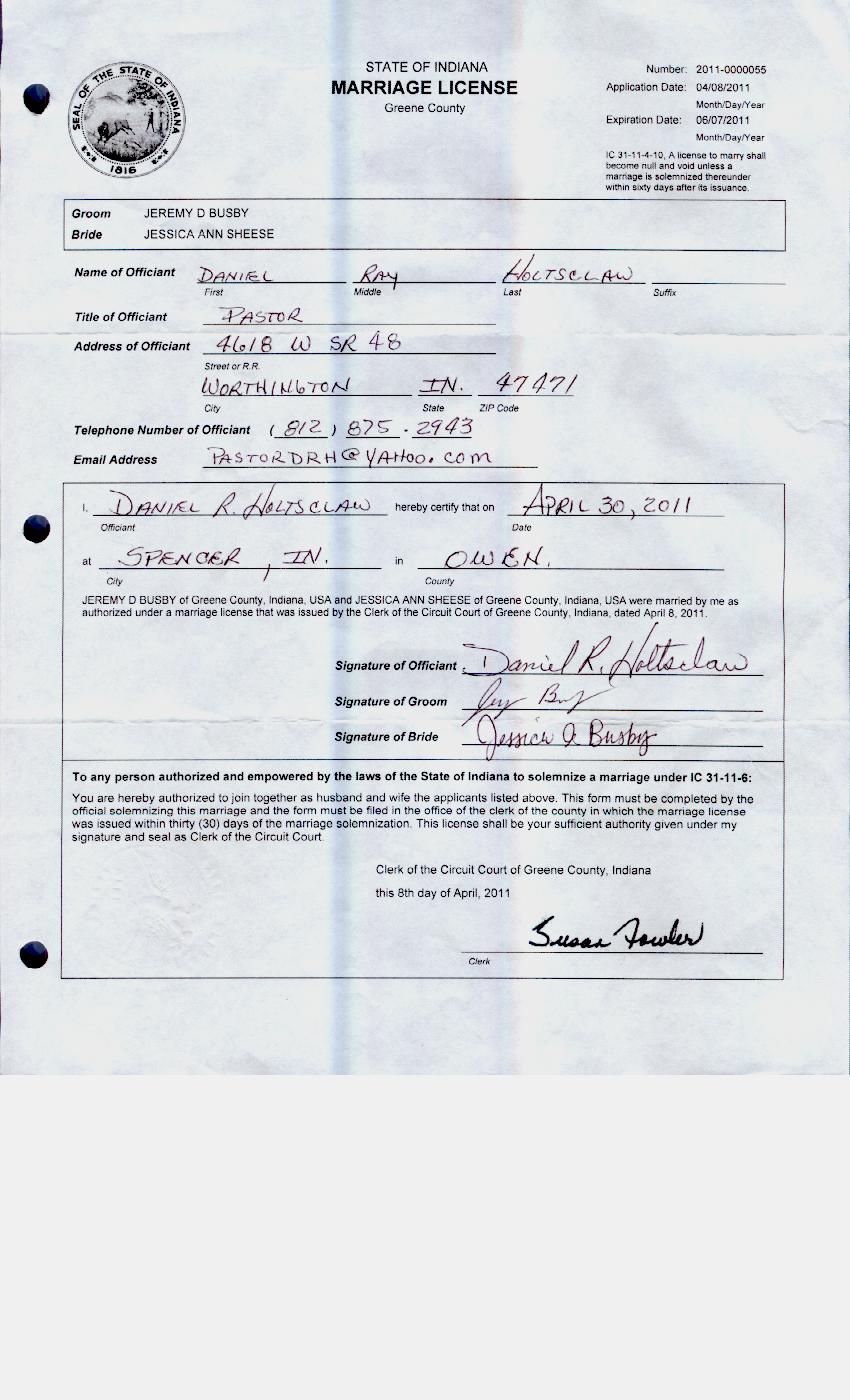 SEAL OF THE STATE OF INDIANA
1816
STATE OF INDIANA
MARRIAGE LICENSE
Greene County
Number: 2011-0000055
Application Date: 04/08/2011
Month/Day/Year
Expiration Date: 06/07/2011
Month/Day/Year
IC 31-11-4-10, A license to marry shall
become null and void unless a
marriage is solemnized thereunder
within sixty days after its issuance.
Groom JEREMY D BUSBY
Bride JESSICA ANN SHEESE
Name of Officiant DANIEL RAY HOLTSCLAW
First Middle Last Suffix
Title of Officiant PASTOR
Address of Officiant 4618 W SR 48
Street or R.R.
WORTHINGTON IN. 47471
City State ZIP Code
Telephone Number of Officiant (812) 875-2943
Email Address PASTORDRH@YAHOO.COM
I, DANIEL R. HOLTSCLAW hereby certify that on APRIL 30, 2011
Officiant Date
at SPENCER, IN. in OWEN.
City County
JEREMY D BUSBY of Greene County, Indiana, USA and JESSICA ANN SHEESE of Greene County, Indiana, USA were married by me as
authorized under a marriage license that was issued by the Clerk of the Circuit Court of Greene County, Indiana, dated April 8, 2011.
Signature of Officiant: Daniel R. Holtsclaw
Signature of Groom
Signature of Bride Jessica A. Busby
To any person authorized and empowered by the laws of the State of Indiana to solemnize a marriage under IC 31-11-6:
You are hereby authorized to join together as husband and wife the applicants listed above. This form must be completed by the
official solemnizing this marriage and the form must be filed in the office of the clerk of the county in which the marriage license
was issued within thirty (30) days of the marriage solemnization. This license shall be your sufficient authority given under my
signature and seal as Clerk of the Circuit Court.
Clerk of the Circuit Court of Greene County, Indiana
this 8th day of April, 2011
Susan Fowler
Clerk